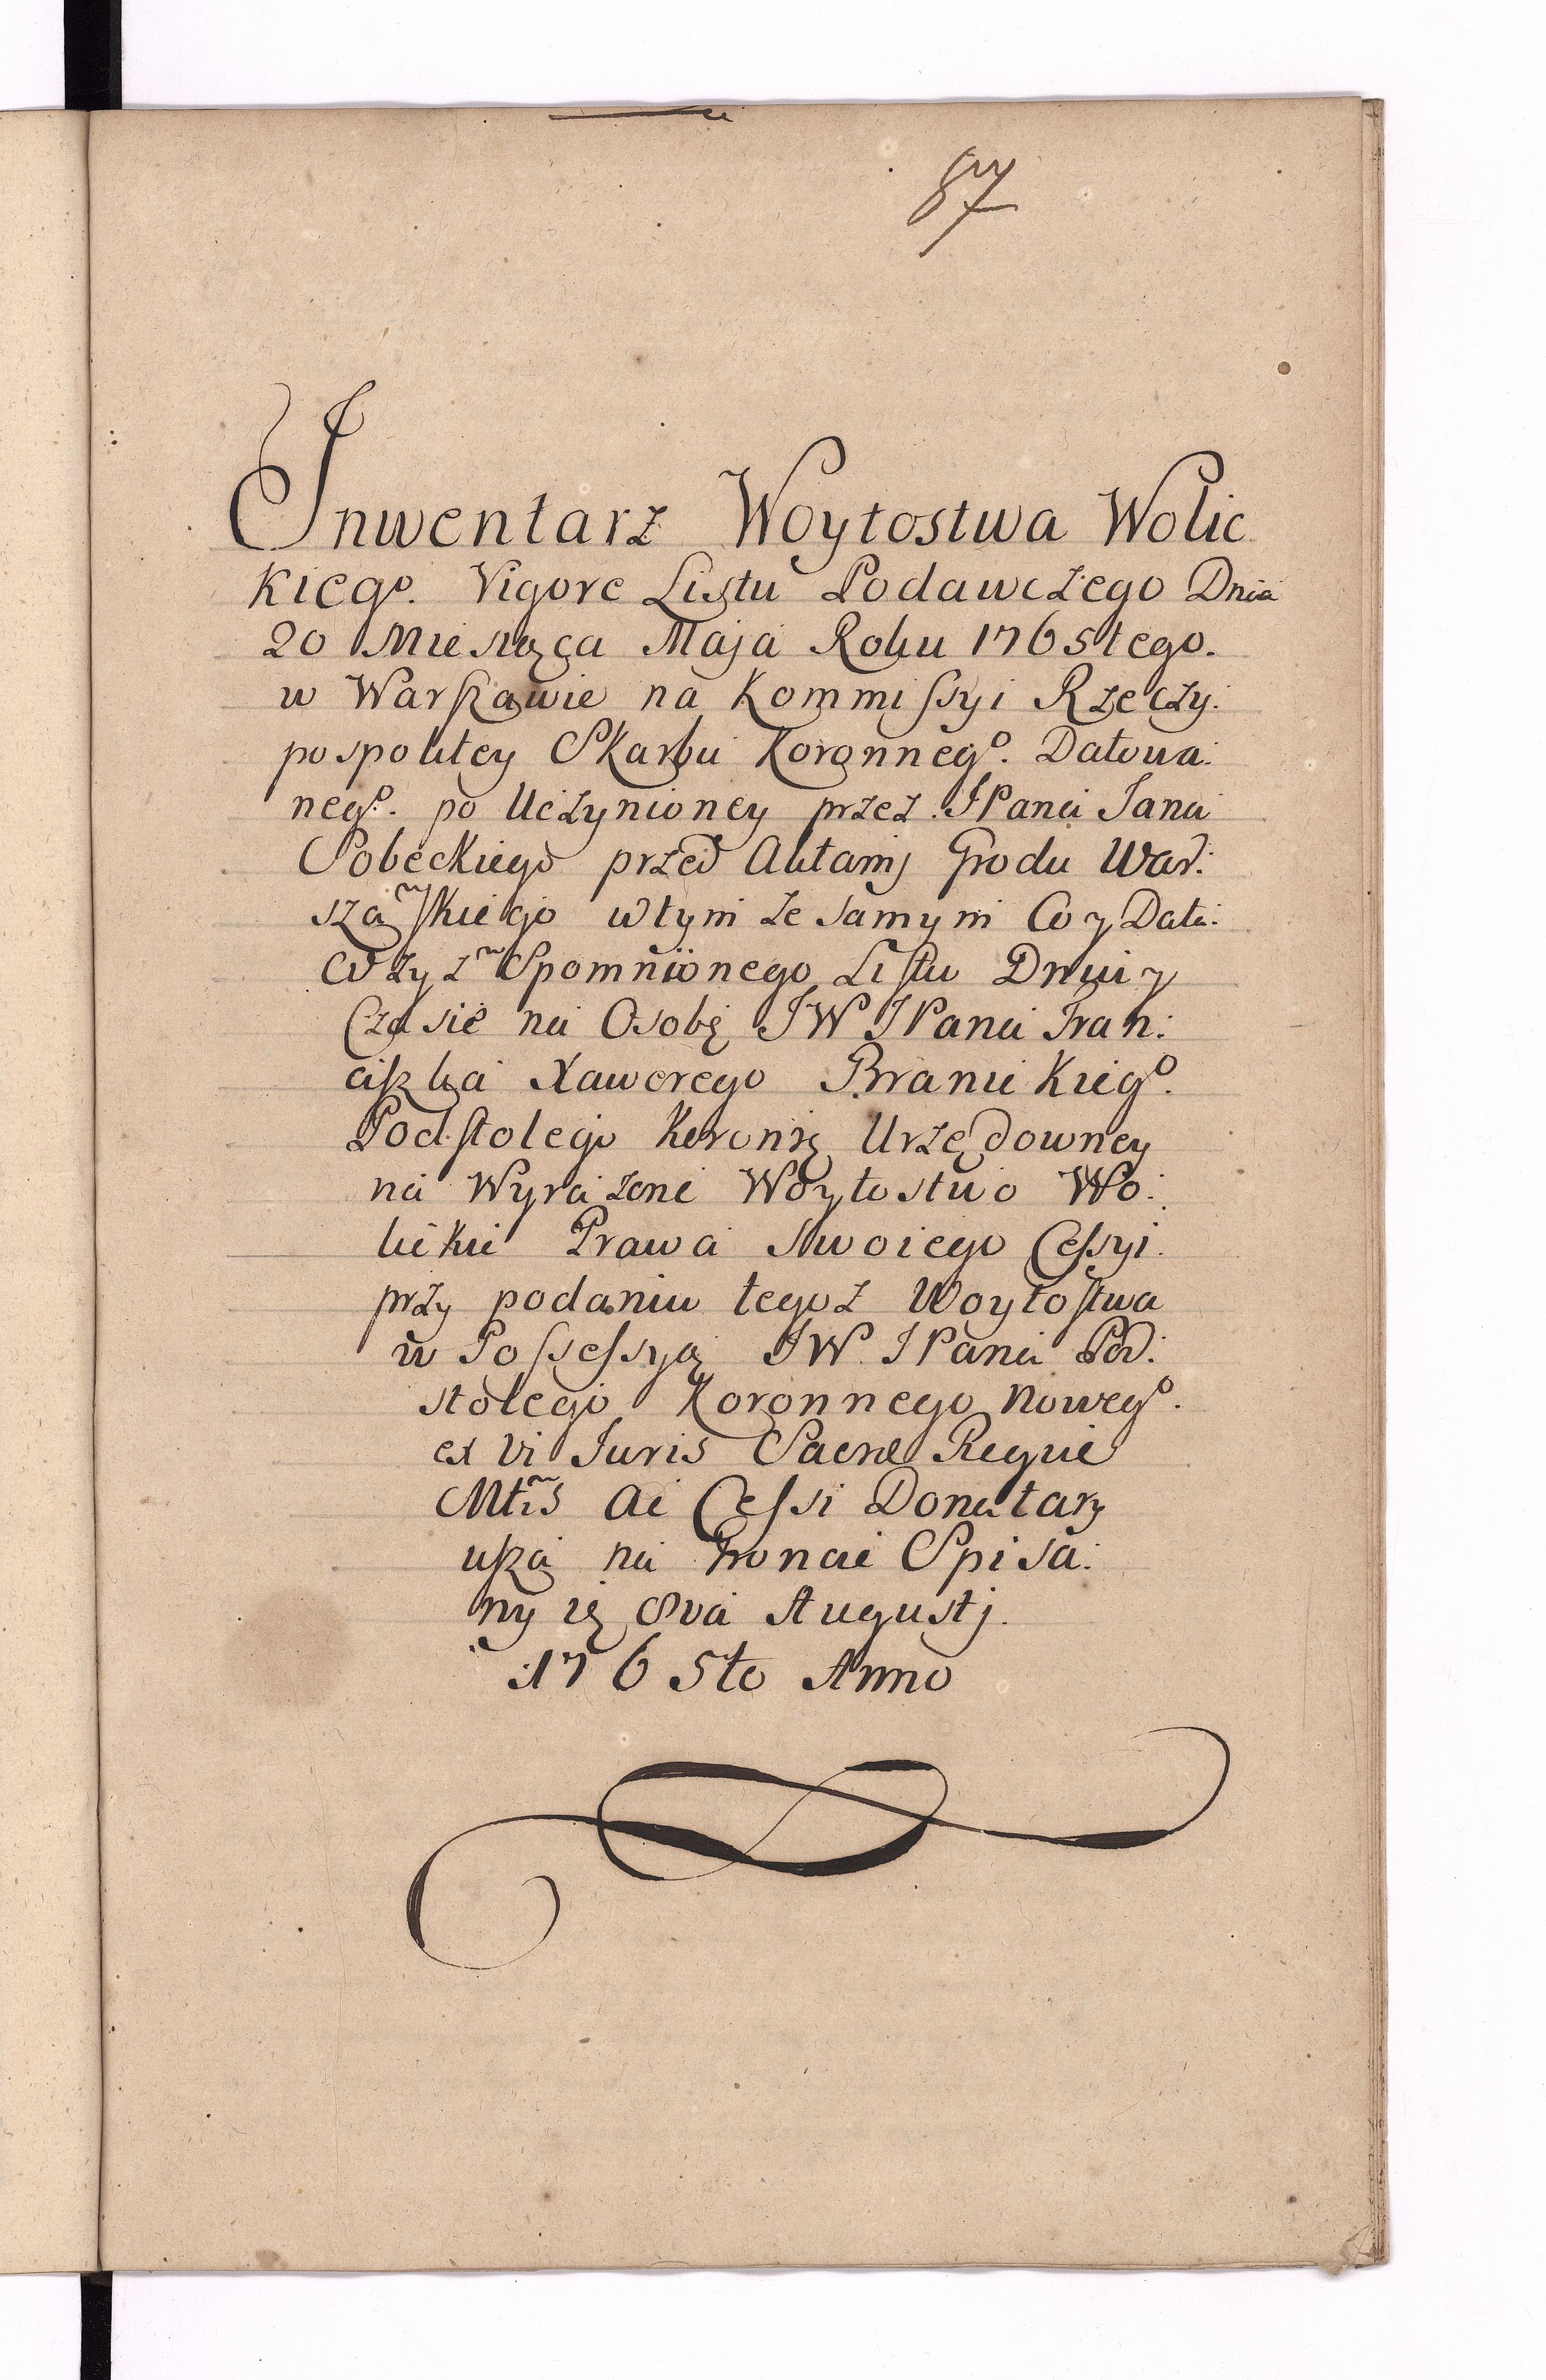 87
Inwentarz Woytostwa Wolic
kieg°. Vigore Listu Podawczego Dnia
20 Miesiąca Maja Roku 1765tego.
w Warszawie na Kommissyi Rzeczy:
pospolitey Skarbu Koronneg°. Datowa:
neg°. po Uczynioney przez JPana Jana
Sobeckiego przed Aktamj Grodu War:
szaskiego wtym ze samym Co y Data:
Spomnionego Listu Dniu y
Czasie na Osobę JW JPana Fran:
ciszka Xawerego Branickieg°.
Podstolego Koronę Urzędowney
na Wyrażone Woytostwo Wo:
lickie Prawa Swoiego Cessyi.
przy podaniu tegoz Woytostwa
w Possessyą JW JPana Pod:
stolego Koronnego Noweg°.
ex Vi Juris Sacræ Regiæ
Mtis ac Cessi Donatary
usza na Groncie Spisa:
ny ię 8va Augustj.
1765to Anno